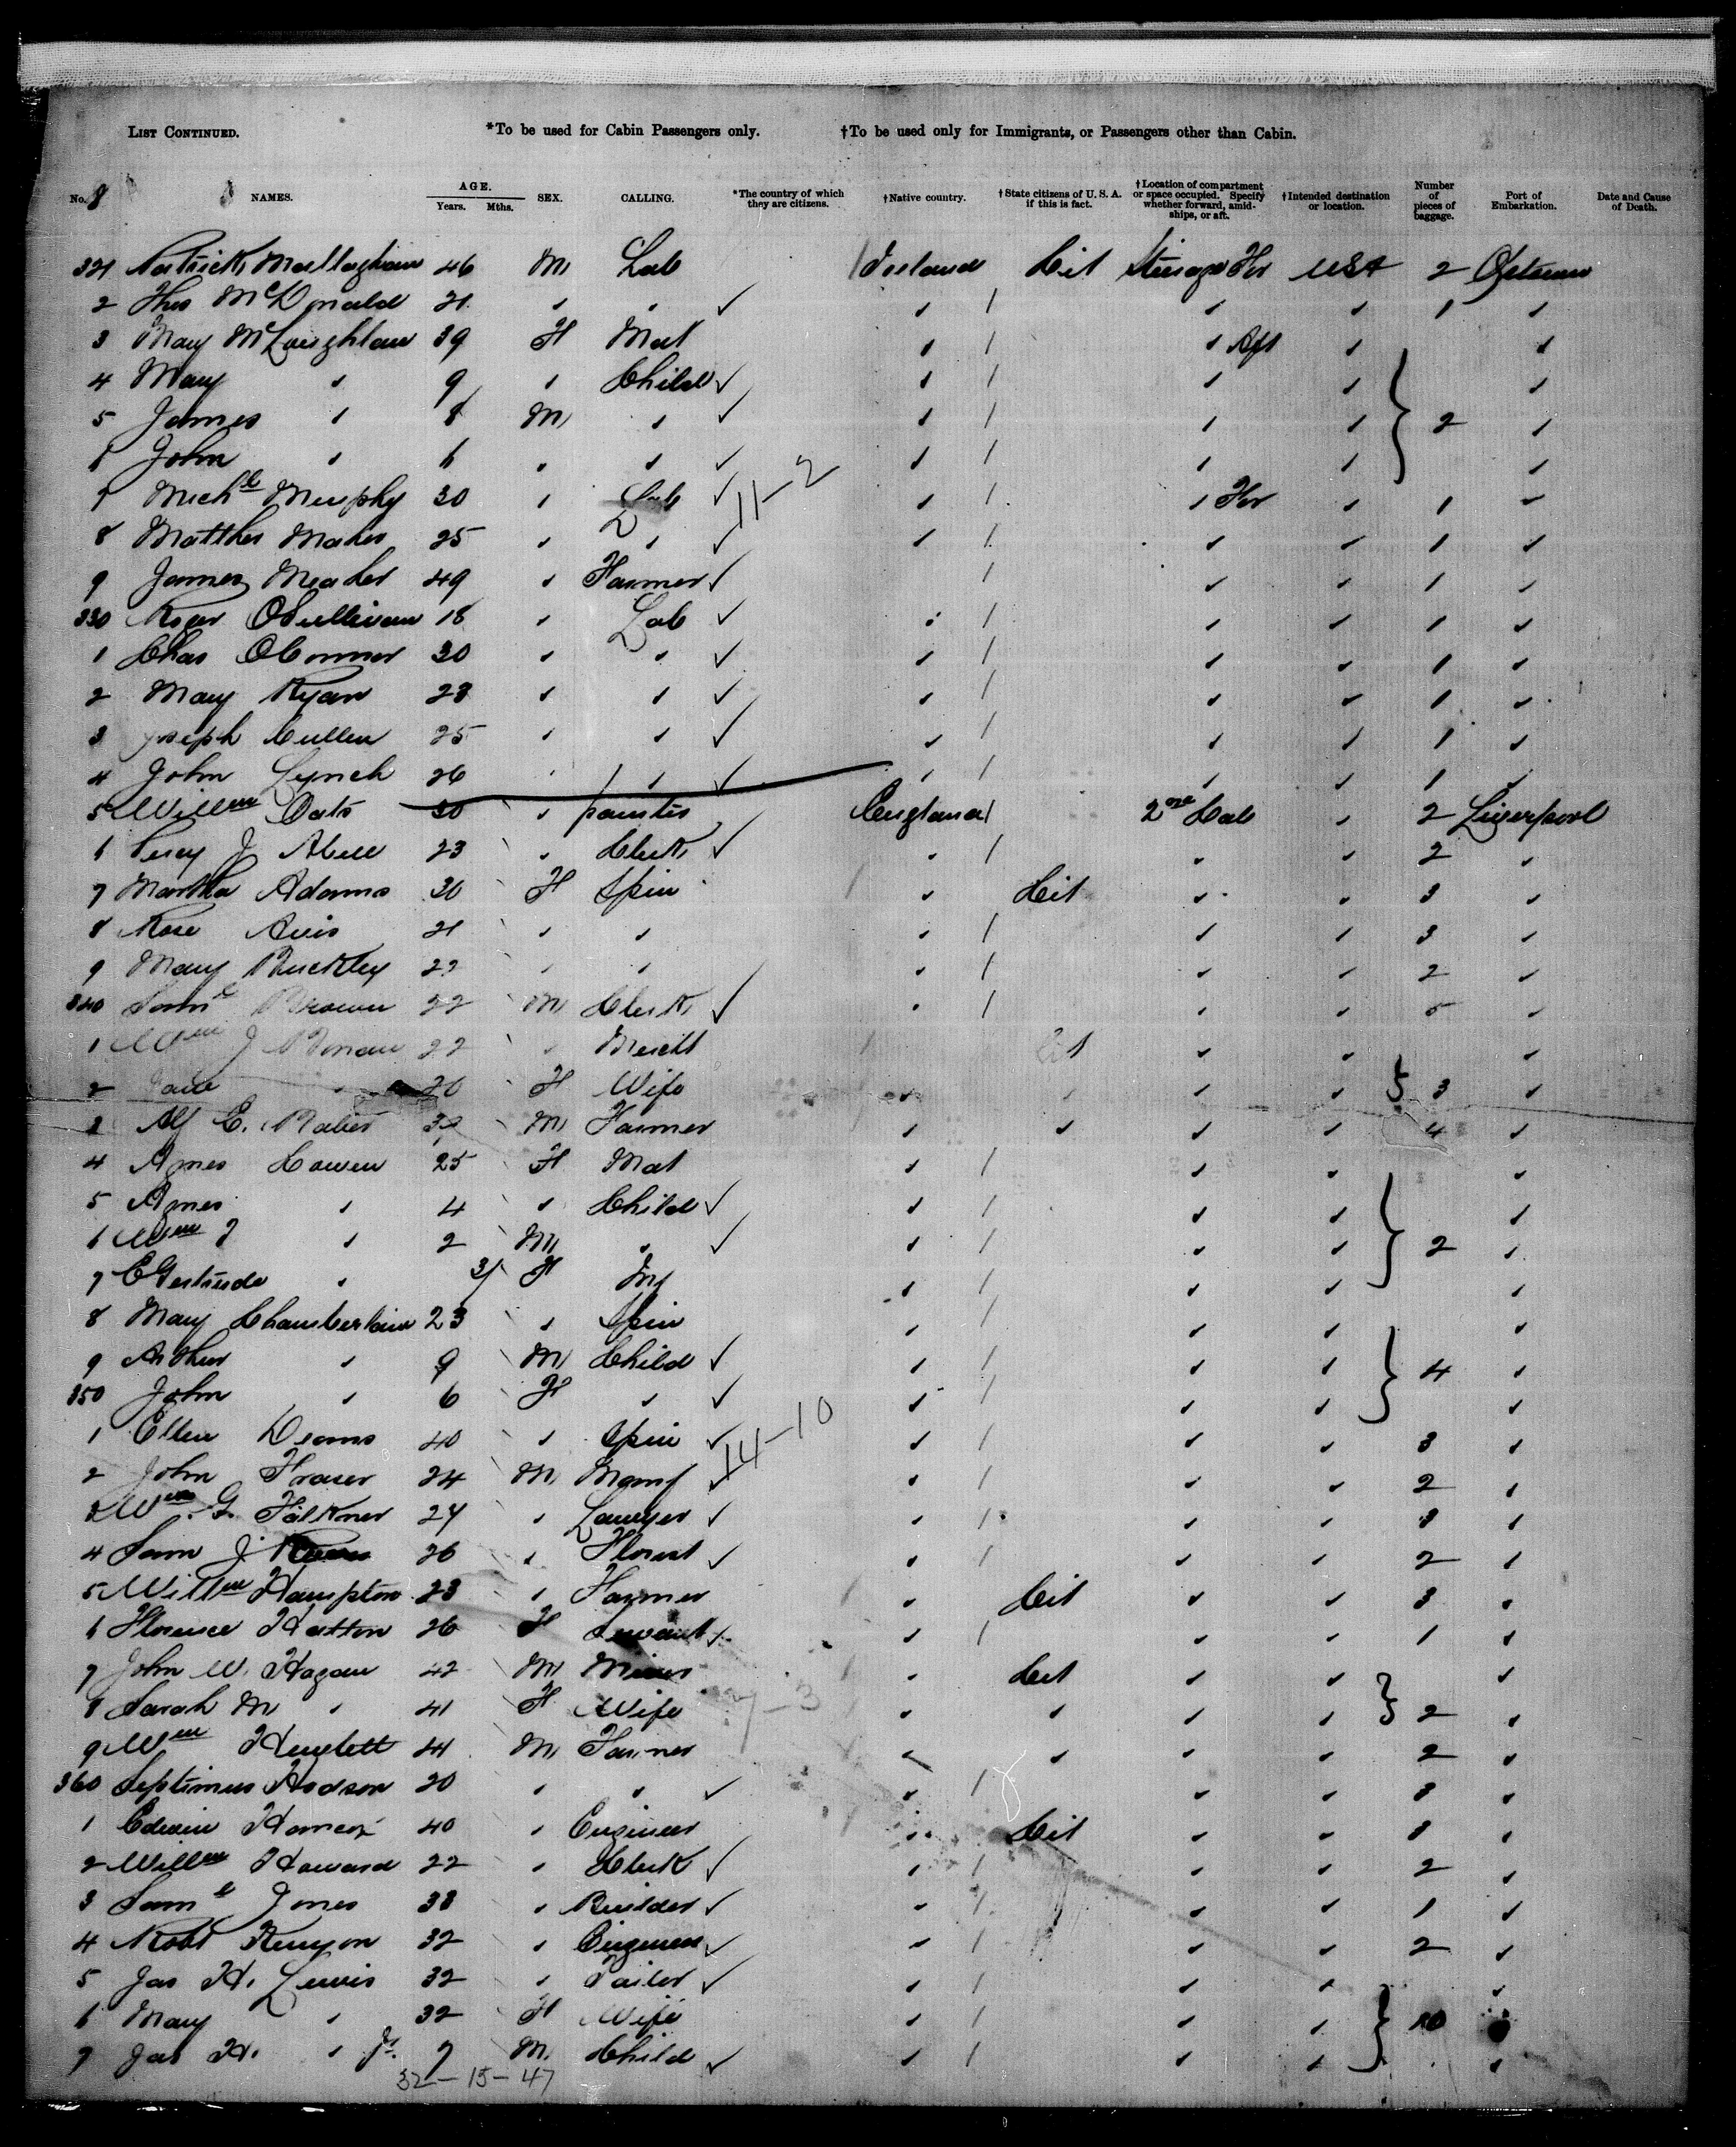 LIST CONTINUED. *To be used for Cabin Passengers only. †To be used only for Immigrants, or Passengers other than Cabin.
No. 8 NAMES. AGE. Years. Mths. SEX. CALLING. *The country of which they are citizens. †Native country. †State citizens of U. S. A. if this is fact. †Location of compartment or space occupied. Specify whether forward, amidships, or aft. †Intended destination or location. Number of pieces of baggage. Port of Embarkation. Date and Cause of Death.
321 Patrick Mallaghan 46 M Lab Ireland Cit Steerage For USA 2
2 Thos McDonald 21 1
3 Mary McLaughlan 39 F Mat Aft
4 Mary 9 Child
5 James 8 M 2
6 John 6
7 Michl Murphy 30 Lab 11-2 For 1
8 Matthew Maher 25 1
9 James Meaher 49 Farmer 1
330 Roger OSullivan 18 Lab 1
1 Chas OConnor 30 1
2 Mary Ryan 28 1
3 Joseph Cullen 25 1
4 John Lynch 26 1
5 Willm Oats 30 painter England 2nd Cab 2 Liverpool
6 Percy J Abell 23 Clerk 2
7 Martha Adams 30 F Spin Cit 3
8 Rose Avis 21 3
9 Mary Buckley 22 2
340 Saml Brown 22 M Clerk 5
1 Wm J 22 Mercht Cit
2 Jane 20 F Wife 3
3 Alf E. M Farmer 4
4 Agnes Cowen 25 F Mat
5 Agnes 4 Child
6 Wm J 2 M 2
7 E Gertrude 3/ F Inf
8 Mary Chamberlain 23 Spin
9 Arthur 9 M Child 4
350 John 6 F
1 Ellen Deams 40 Spin 14-10 3
2 John Fraser 24 M Manf 2
3 Wm. G. Falkner 24 Lawyer 3
4 Sam J 26 Florist 2
5 Willm Hampton 28 Farmer Cit 3
6 Florence Hatton 26 F Servant 1
7 John W. Hagan 42 M Miner Cit
8 Sarah M 41 F Wife 7-3 2
9 Wm Hewlett 41 M Farmer 2
360 Septimus Hodson 20 3
1 Edwin Hancox 40 Engineer Cit 3
2 Willm Howard 22 Clerk 2
3 Saml Jones 38 Builder 1
4 Robt Kenyon 32 Engineer 2
5 Jas H. Lewis 32 Tailor
6 Mary 32 F Wife 10
7 Jas H. Jr. 7 M Child
32-15-47